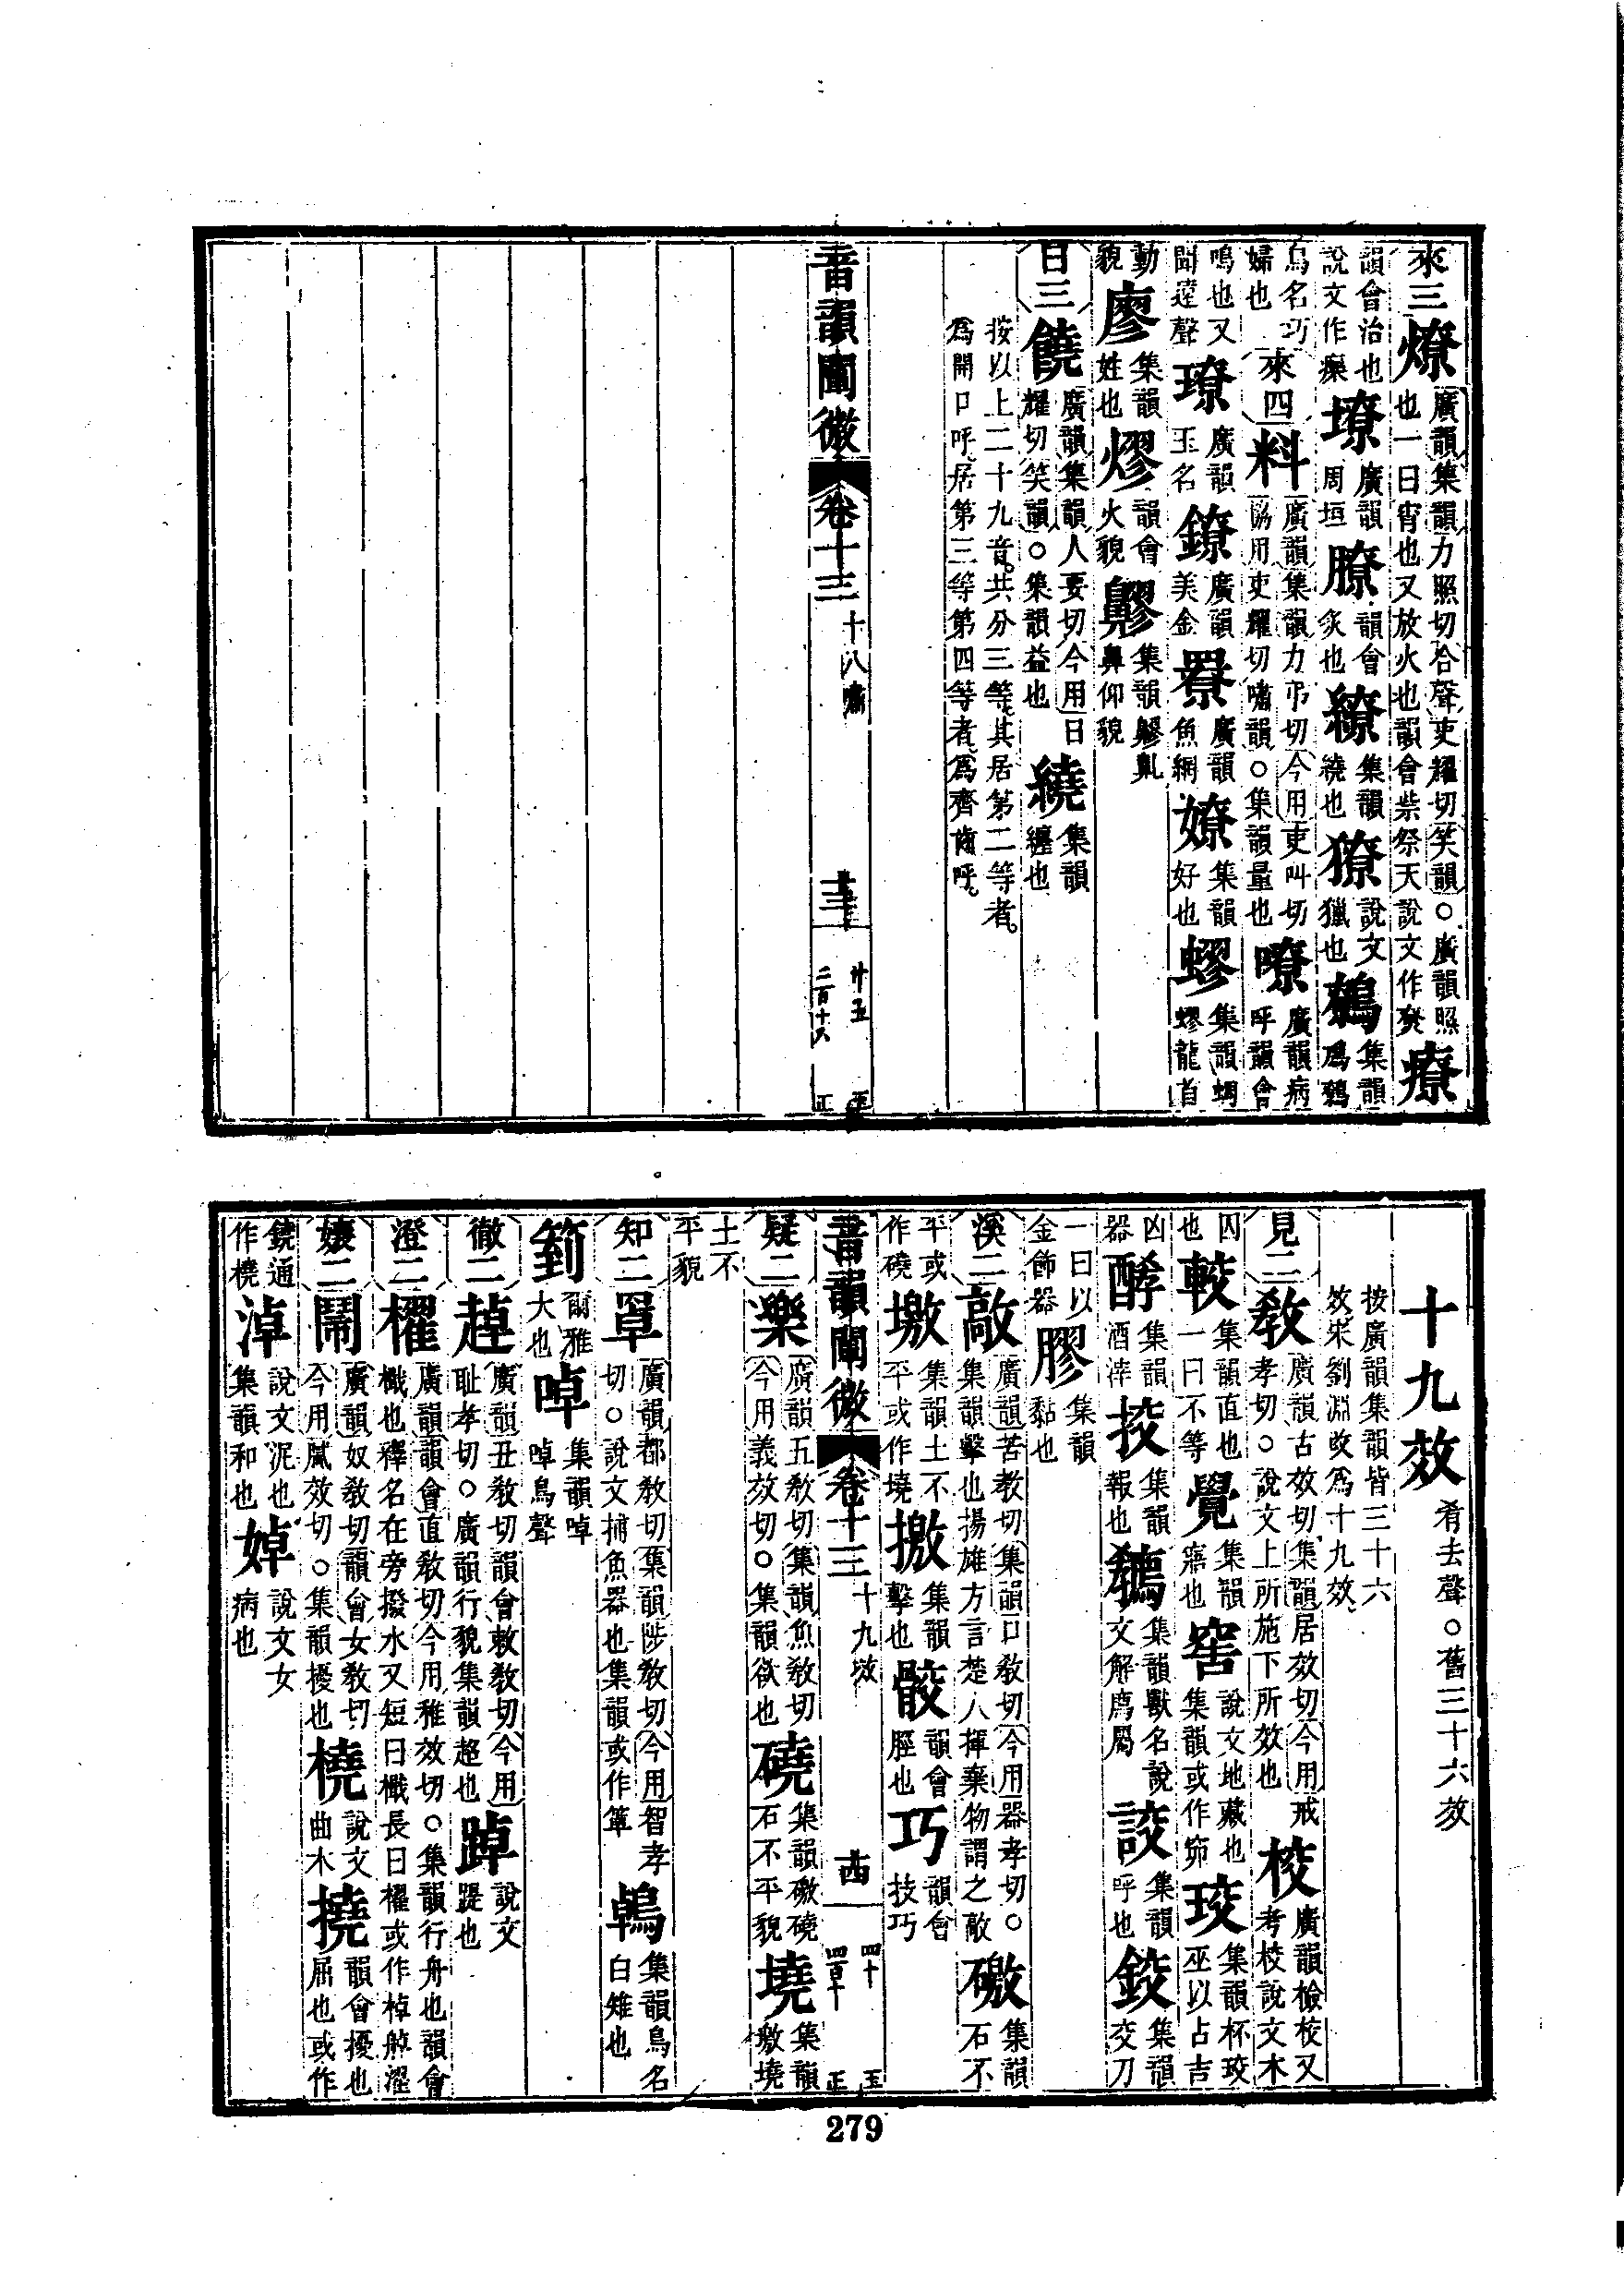 來三燎廣韻集韻力照切合聲吏耀切笑韻○廣韻照也一曰宵也又放火也韻會祡祭天說文作尞療
韻會治也說文作𤻲嫽廣韻周垣膫韻會炙也繚集韻繞也獠說文獵也鷯集韻鳸鷯
鳥名巧婦也來四料廣韻集韻力弔切今用吏叫切協用吏耀切嘯韻○集韻量也嘹廣韻病呼韻會
鳴也又聞遠聲璙廣韻玉名鐐廣韻美金䍡廣韻魚網嫽集韻好也蟉集韻蜩蟉龍首
動貌廖集韻姓也熮韻會火貌鷚集韻鼻仰貌
日三饒廣韻集韻人要切今用日耀切笑韻○集韻益也繞集韻纏也
按以上二十九音共分三等其居第二等者
為開口呼居第三等第四等者為齊齒呼
音韻闡微 卷十三 十八嘯
十九效 肴去聲○舊三十六效
按廣韻集韻皆三十六
效宋劉淵改為十九效
見二教廣韻古效切集韻居效切今用戒孝切○說文上所施下所效也校廣韻檢校又考校說文木
囚也較集韻直也一曰不等覺集韻寤也窖說文地藏也集韻或作窌珓集韻杯珓巫以占吉
凶器酵集韻酒滓挍集韻報也𤝞集韻獸名說文解廌屬詨集韻呼也鉸集韻交刀
一曰以金飾器膠集韻黏也
溪二敲廣韻苦教切集韻口教切今用器孝切○集韻擊也揚雄方言楚人揮棄物謂之敲礉集韻石不
平或作磽墝集韻土不平或作墝撽集韻擊也骹韻會脛也巧韻會技巧
音韻闡微 卷十三 十九效
疑二樂廣韻五教切集韻魚教切今用義效切○集韻欲也磽集韻礉磽石不平貌墝集韻墽墝
土不平貌
知二罩廣韻都教切集韻陟教切今用智孝切○說文捕魚器也集韻或作箄鵫集韻鳥名白雉也
箌爾雅大也啅集韻啅啅鳥聲
徹二趠廣韻丑教切韻會敕教切今用恥孝切○廣韻行貌集韻超也踔說文踶也
澄二櫂廣韻韻會直教切今用稚效切○集韻行舟也韻會檝也釋名在旁撥水又短曰檝長曰櫂或作棹𦨖濯
孃二鬧廣韻奴教切韻會女教切今用膩效切○集韻擾也橈說文曲木撓韻會擾也屈也或作
鐃通作橈淖說文泥也集韻和也婥說文女病也
279